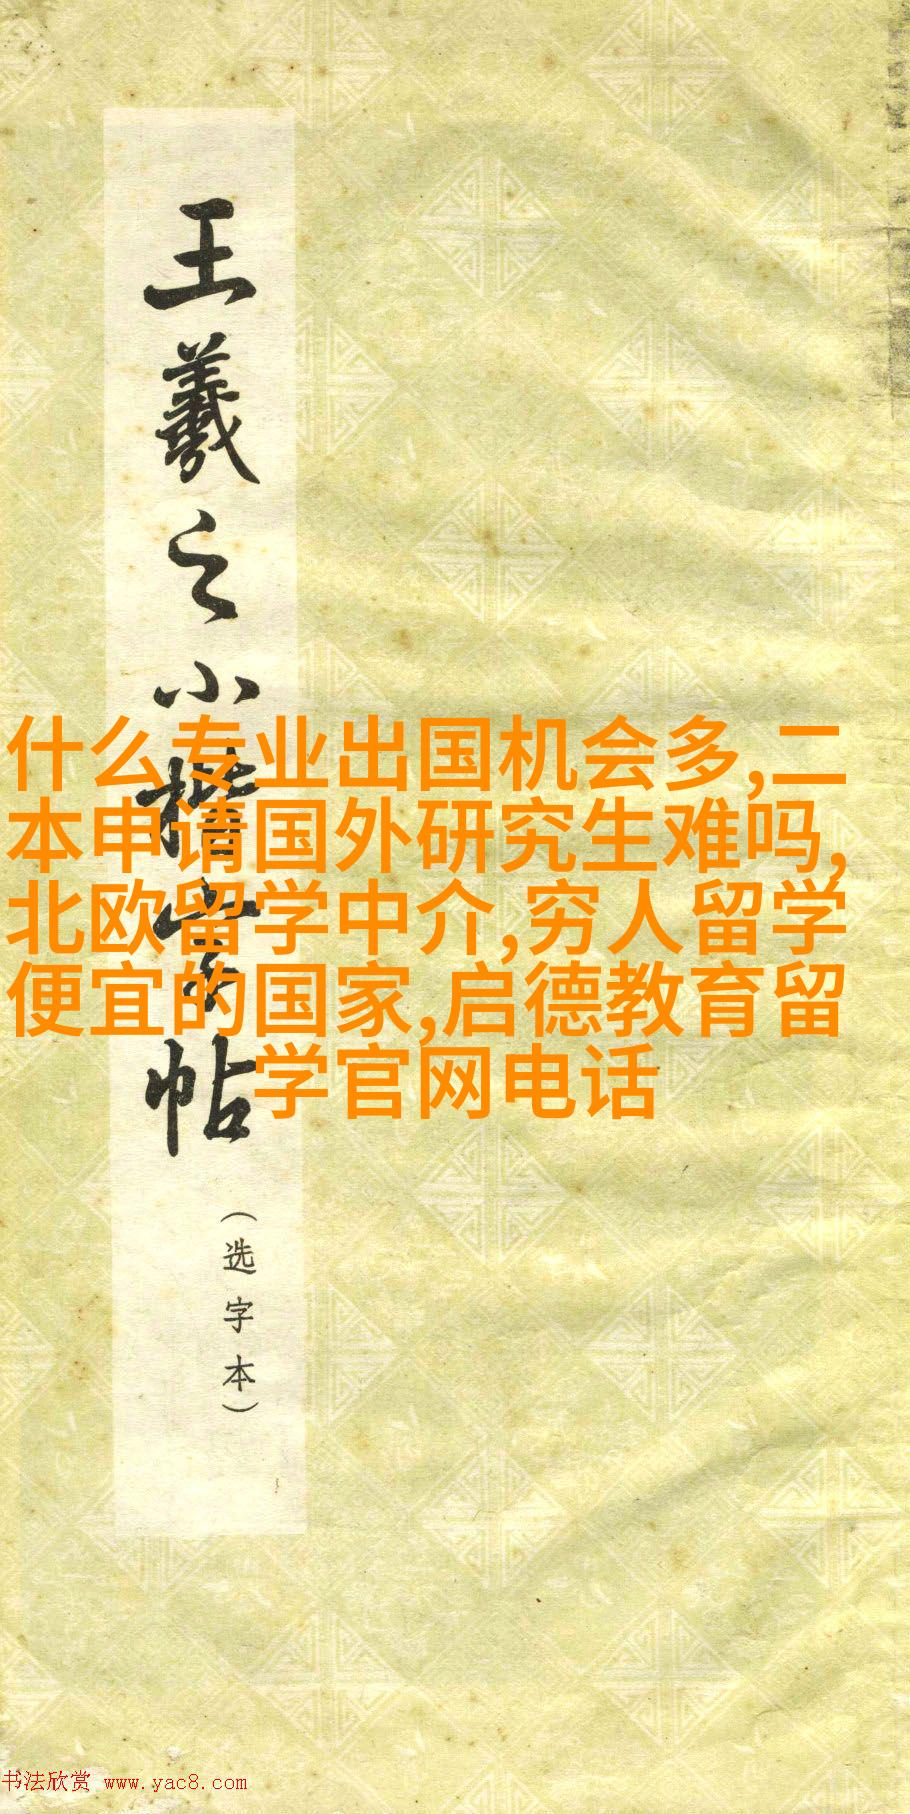 王羲之小楷字帖
（选字本）
什么专业出国机会多,二
本申请国外研究生难吗,
北欧留学中介,穷人留学
便宜的国家,启德教育留
学官网电话
书法欣赏 www.yac8.com